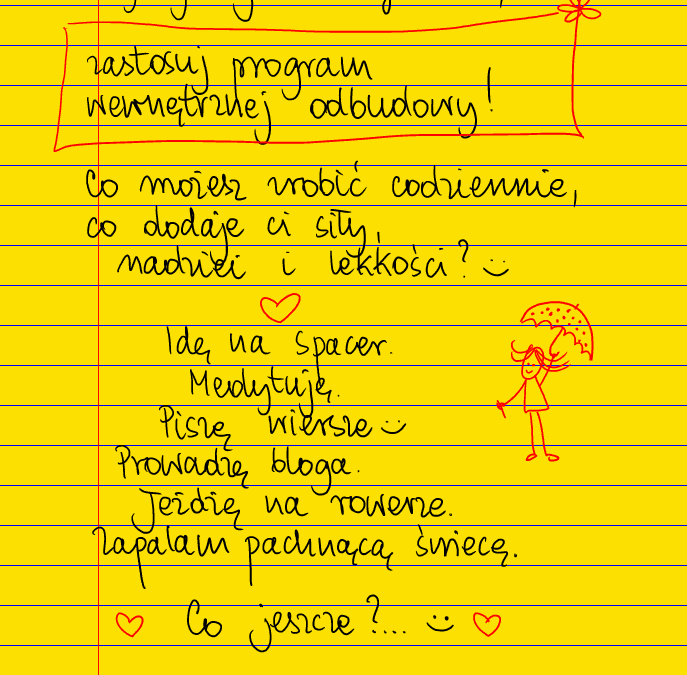 zastosuj program
wewnętrznej odbudowy!
Co możesz zrobić codziennie,
co dodaje ci siły,
nadziei i lekkości? :)
Idę na spacer.
Medytuję.
Piszę wiersze :)
Prowadzę bloga.
Jeżdżę na rowerze.
Zapalam pachnącą świecę.
Co jeszcze?... :)